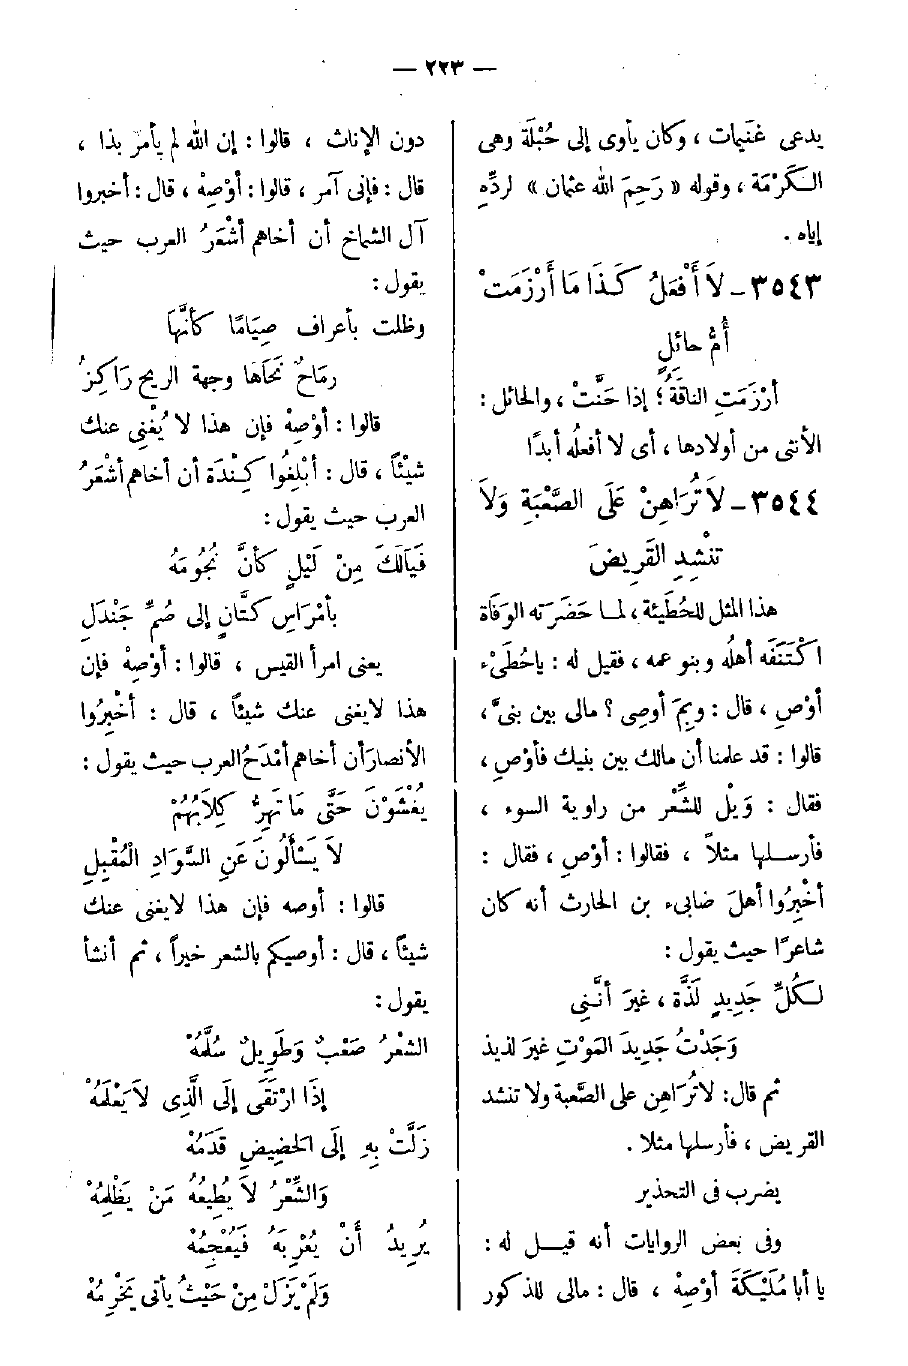 — ٢٢٣ —
يدعى غنَيمات ، وكان يأوى إلى حُبْلَة وهى
الكَرْمَة ، وقوله « رَحِمَ الله عثمان » لردِّه
إياه .
٣٥٤٣ – لاَ أَفْعَلُ كَذَا مَا أَرْزَمَتْ
أُمُّ حائلٍ
أرْزَمَتِ الناقَةُ ؛ إذا حَنَّتْ ، والحائل :
الأنثى من أولادها ، أى لا أفعلُه أبدًا
٣٥٤٤ – لاَ تُرَاهِنْ عَلَى الصَّعْبَةِ وَلاَ
تنْشِدِ القَرِيضَ
هذا المثل للحُطَيئة ، لمـا حَضَرَته الوَفَاة
اكْتَنَفَه أهلُه وبنو عمه ، فقيل له : ياحُطَىْء
أوْصِ ، قال : وبِمَ أوصِى ؟ مالى بين بنىَّ ،
قالوا : قد علمنا أن مالك بين بنيك فأوْصِ ،
فقال : وَيْل للشِّعْر من راوية السوء ،
فأرسلها مثلاً ، فقالوا : أوْصِ ، فقال :
أخْبِرُوا أهلَ ضابىء بن الحارث أنه كان
شاعرًا حيث يقول :
لـكُلِّ جَدِيدٍ لَذَّة ، غيرَ أنَّنِى
وَجَدْتُ جَدِيدَ المَوْتِ غيرَ لذيذ
ثم قال : لاتُرَاهِن على الصَّعبة ولا تنشد
القريض ، فأرسلها مثلا .
يضرب فى التحذير
وفى بعض الروايات أنه قيـل له :
يا أبا مُلَيْكَةَ أوْصِهْ ، قال : مالى للذكور
دون الإناث ، قالوا : إن الله لم يأمر بذا ،
قال : فإنى آمر ، قالوا : أوْصِهْ ، قال : أخبروا
آل الشماخ أن أخاهم أشْعَرُ العرب حيث
يقول :
وظلت بأعراف صِيَامًا كأنَّهَا
رماحٌ نَحَاهَا وجهة الريح رَاكِزُ
قالوا : أوْصِهْ فإن هذا لا يُغْنِى عنك
شيْئاً ، قال : أبْلِغُوا كِنْدَة أن أخاهم أشْعَرُ
العرب حيث يقول :
فَيَالَكَ مِنْ لَيْلٍ كأنَّ نُجُومَهُ
بأمْرَاسِ كَتَّانٍ إلى صُمِّ جَنْدَلِ
يعنى امرأ القيس ، قالوا : أوْصِهْ فإن
هذا لايغنى عنك شيئاً ، قال : أخْبِرُوا
الأنصارَ أن أخاهم أمْدَحُ العرب حيث يقول :
يُغْشَوْنَ حَتَّى مَا تَهِرُّ كِلاَبُهُمْ
لاَ يَسْأَلُونَ عَنِ السَّوَادِ الْمُقْبِلِ
قالوا : أوصه فإن هذا لايغنى عنك
شيئاً ، قال : أوصيكم بالشعر خيراً ، ثم أنشأ
يقول :
الشعْرُ صَعْبٌ وَطَوِيلٌ سُلَّمُهْ
إذَا ارْتَقَى إلَى الَّذِى لاَ يَعْلَمُهْ
زَلَّتْ بِهِ إلَى الحَضِيضِ قَدَمُهْ
وَالشِّعْرُ لاَ يُطِيعُهُ مَنْ يَظْلِمُهْ
يُرِيدُ أنْ يُعْرِبَهُ فَيُعْجِمُهْ
وَلَمْ يَزَلْ مِنْ حَيْثُ يأتى يَخْرِمُهْ